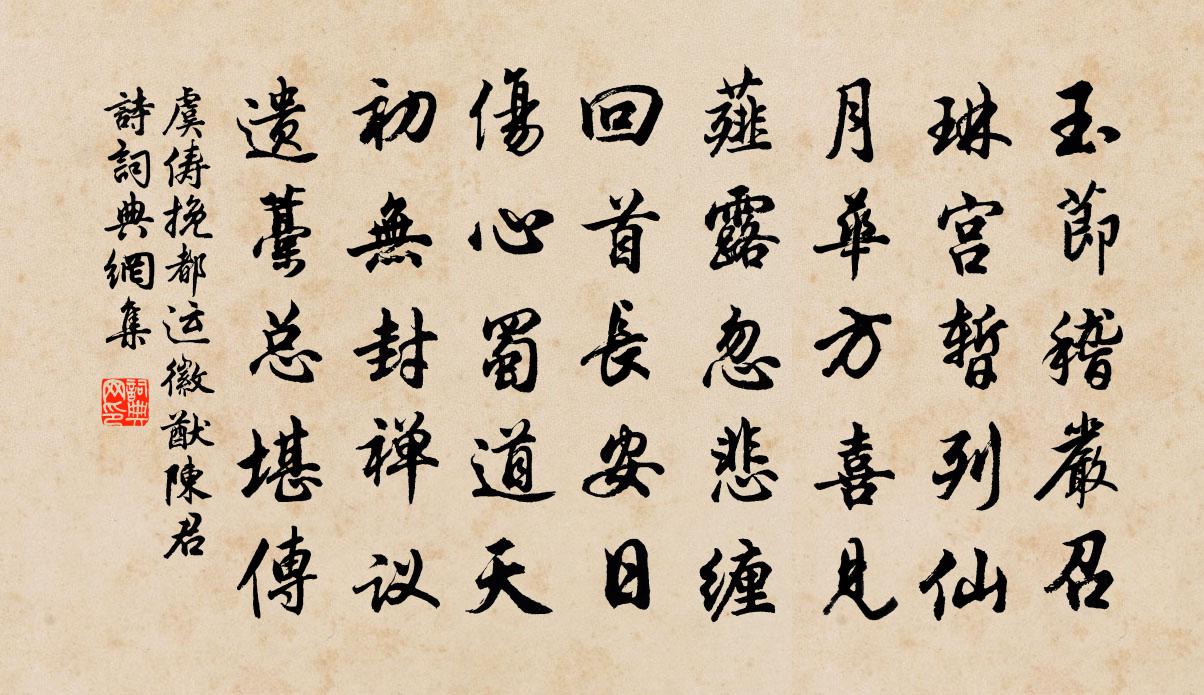 玉節稽嚴召
琳宫暫列仙
月華方喜見
薤露忽悲缠
回首長安日
傷心蜀道天
初無封禅议
遗藁总堪傳
虞俦挽都运徽猷陳君
詩詞典網集
詞典网印